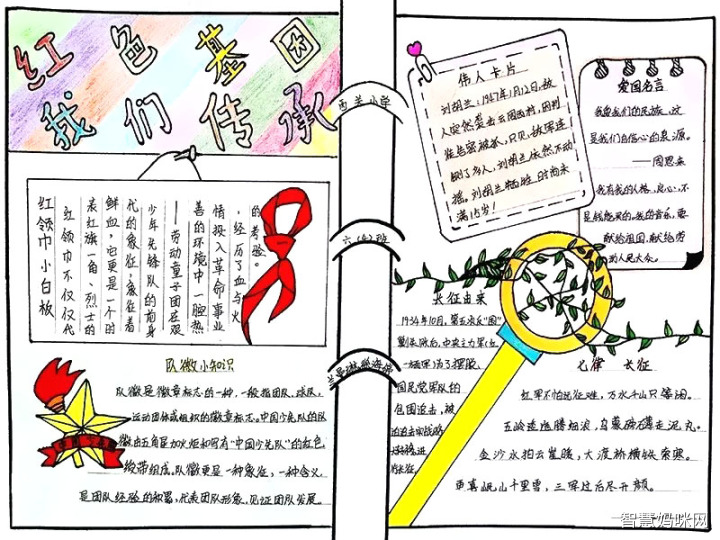 红色基因
我们传承
红领巾小白板
红领巾不仅仅代
表红旗一角、烈士的
鲜血，它更是一个时
代的象征，象征着
少年先锋队的前身
——劳动童子团在艰
善的环境中一腔热
情投入革命事业
，经历了血与火
的考验。
队徽小知识
队徽是徽章标志的一种，一般指团队、球队、
运动团体或组织的徽章标志。中国少先队的队
徽由五角星加火炬和写有“中国少先队”的红色
绶带组成。队徽更是一种象征，一种含义，
是团队经验的积累，代表团队形象，见证团队发展。
西关小学
六(6)班
伟人卡片
刘胡兰，1947年1月12日，敌
人突然袭击云周西村，因叛
徒告密被抓，只见，敌军连
铡了多人，刘胡兰依然不动
摇。刘胡兰牺牲时尚未
满15岁！
爱国名言
我爱我们的民族，这
是我们自信心的泉源。
——周恩来
我有我的人格，良心，不
是钱能买的。我的音乐，要
献给祖国，献给劳
动人民大众。
长征由来
1934年10月，第五次反“围”
剿失败后，中央主力军
为了摆脱
国民党军队的
包围追击，被
长征。
七律 长征
红军不怕远征难，万水千山只等闲。
五岭逶迤腾细浪，乌蒙磅礴走泥丸。
金沙水拍云崖暖，大渡桥横铁索寒。
更喜岷山千里雪，三军过后尽开颜。
智慧妈咪网